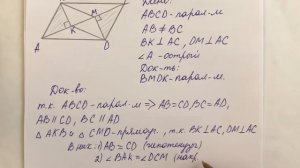 M
K
A
D
Дано:
ABCD-парал-м
AB ≠ BC
BK⊥AC, DM⊥AC
∠A - острый
Док-ть:
BMDK-парал-м.
Док-во:
т.к. ABCD-парал-м => AB=CD, BC=AD,
AB∥CD, BC∥AD
△AKB и △CMD-прямоуг., т.к. BK⊥AC, DM⊥AC
В них: 1) AB = CD (гипотенуз)
2) ∠BAK = ∠DCM (накр